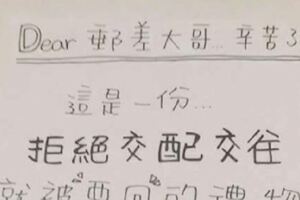 Dear 郵差大哥... 辛苦了
這是一份...
拒絕交配交往
就被要回的禮物